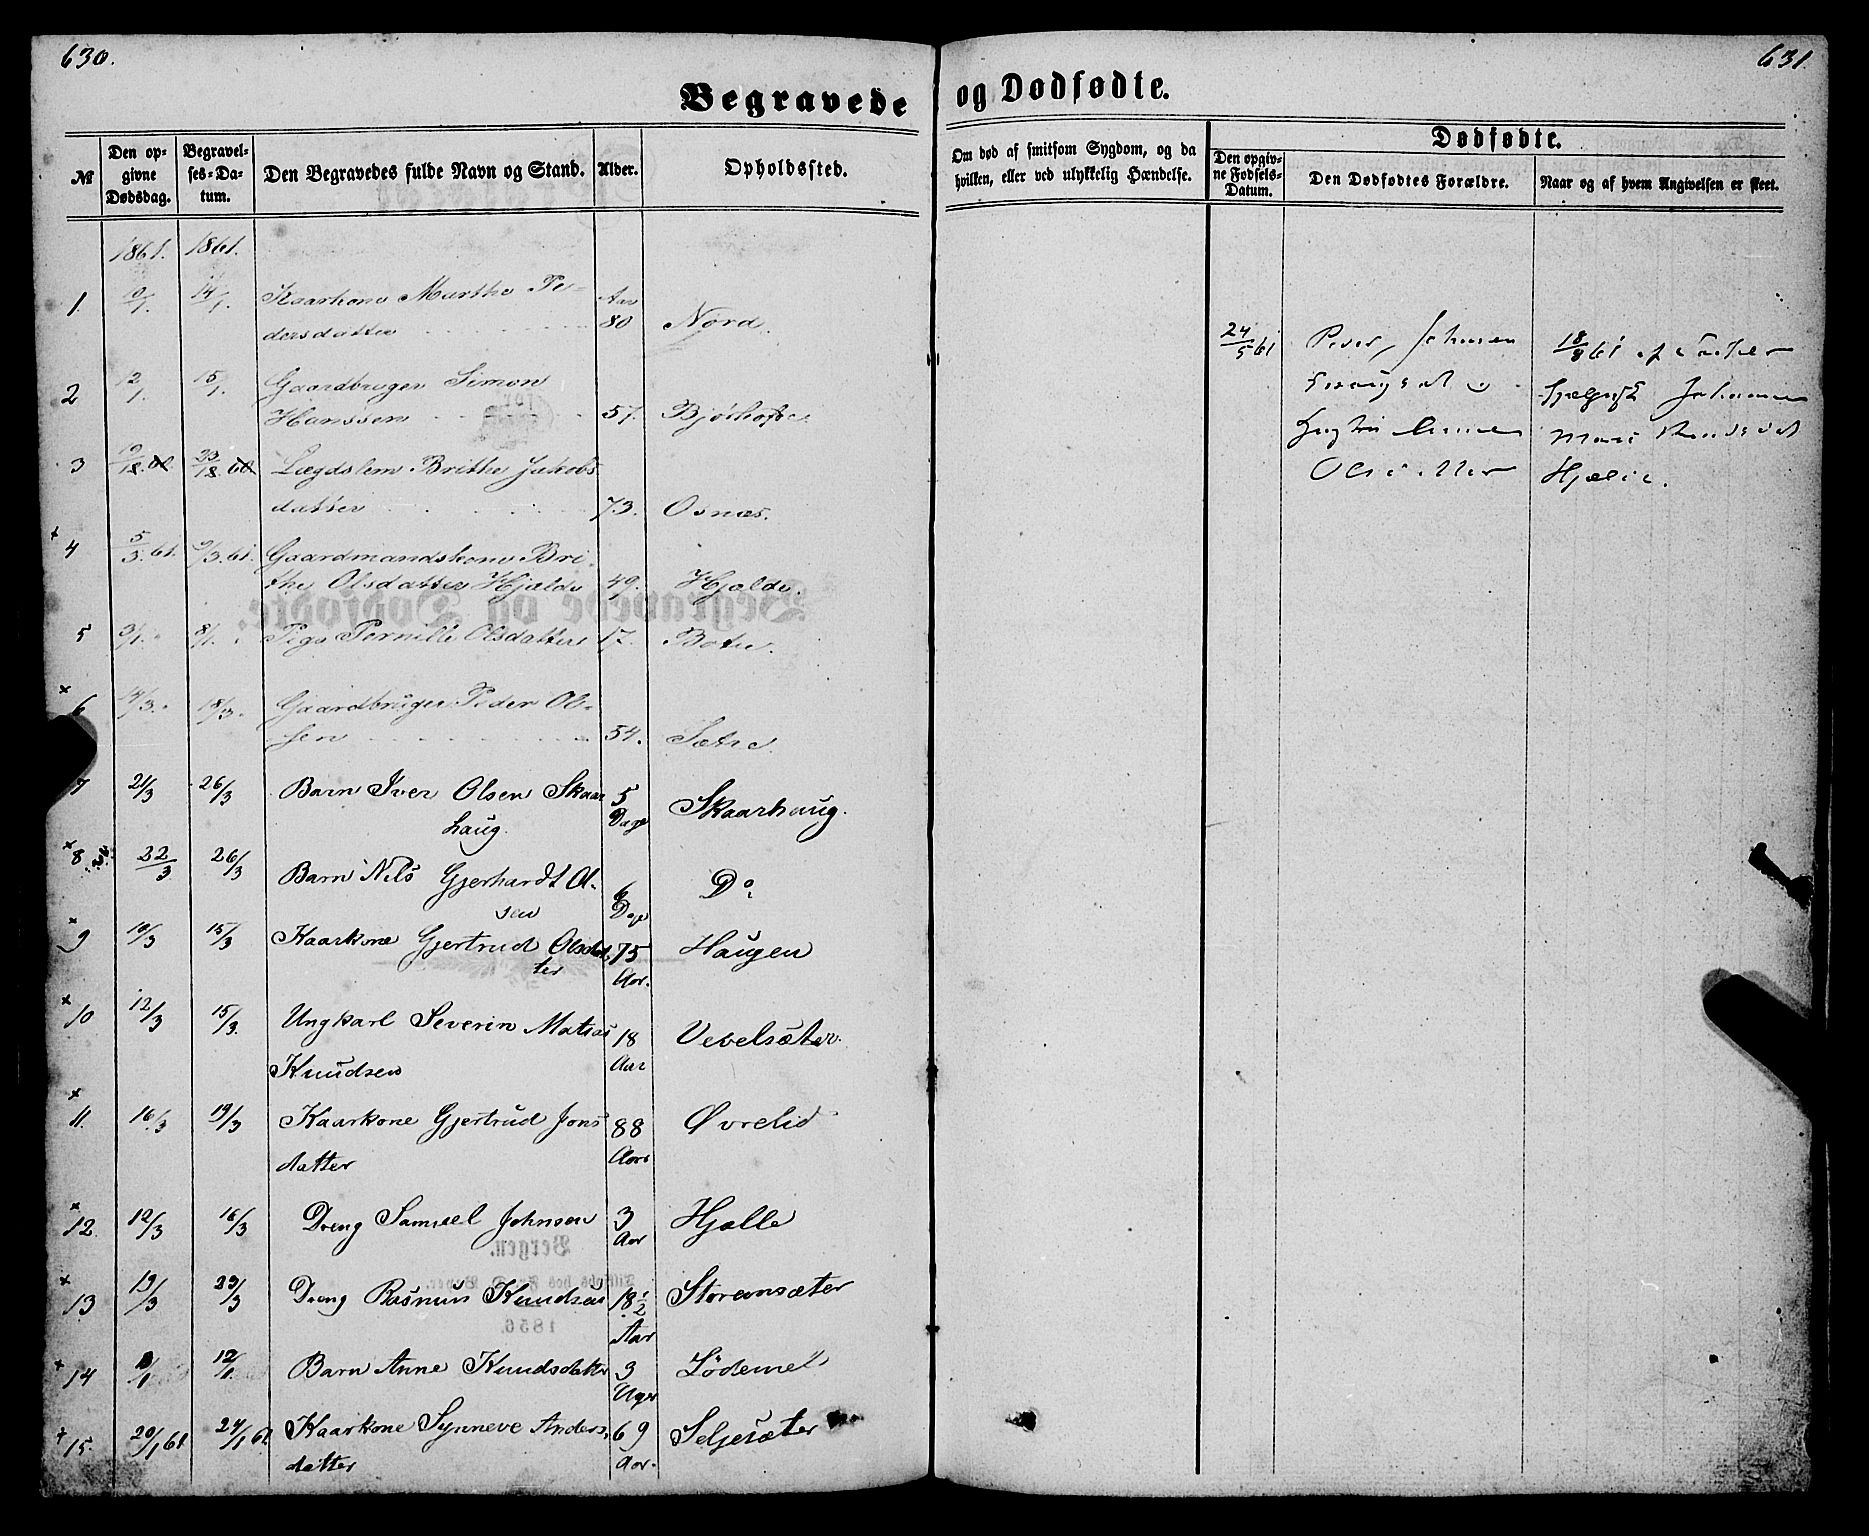 630.
Begravede
№ Den op-givne Dødsdag. Begravel-ses-Da-tum. Den Begravedes fulde Navn og Stand. Alder. Opholdssted.
1861. 1861.
1. 10/1. 14/1. Kaarkone Marthe Pe- Aar
dersdatter 80 Nord.
2 12/1. 15/1. Gaardbruger Simon
Hanssen 57.
3 Lægdslem Brithe Jakobs
datter 73. Osnæs.
+ 4 5/3 61. 9/3 61. Gaardmandskone Bri-
the Olsdatter Hjelde 49. Hjelde.
5 3/1. 8/1. Pige Pernille Olsdatter 17. Botn.
× 6 14/3. 18/3. Gaardbruger Peder Ol-
sen 54. Sætre
7 21/3 26/3 Barn Iver Olsen Skaar 5
haug. Dage Skaarhaug.
× 8 22/3 26/3 Barn Nils Gjerhardt Ol- 6 Do
sen Dage
× 9 10/3 15/3 Kaarkone Gjertrud Olsdat 75 Haugen
ter Aar.
× 10 12/3 15/3. Ungkarl Severin Matias 18 Vevelsæter.
Knudsen Aar
× 11. 16/3 19/3 Kaarkone Gjertrud Jons 88 Øvrelid
datter Aar
× 12. 12/3 16/3 Dreng Samuel Johnsen 3 Hjelle
Aar
× 13 19/3 23/3 Dreng Rasmus Knudsen 18 1/2 Storensæter
Aar
+ 14 12/1 Barn Anne Knudsdatter 3
Uger
+ 15. 20/1 61 24/1 61 Kaarkone Synneve Anders, 69 Seljesæter
datter Aar.
631
og Dødfødte.
Om død af smitsom Sygdom, og da hvilken, eller ved ulykkelig Hændelse.
Dødfødte.
Den opgiv-ne Fødsels-Datum. Den Dødfødtes Forældre. Naar og af hvem Angivelsen er skeet.
24/5 61 Peder Johnsen 18/8 61 af
Hustru
Hjelle.